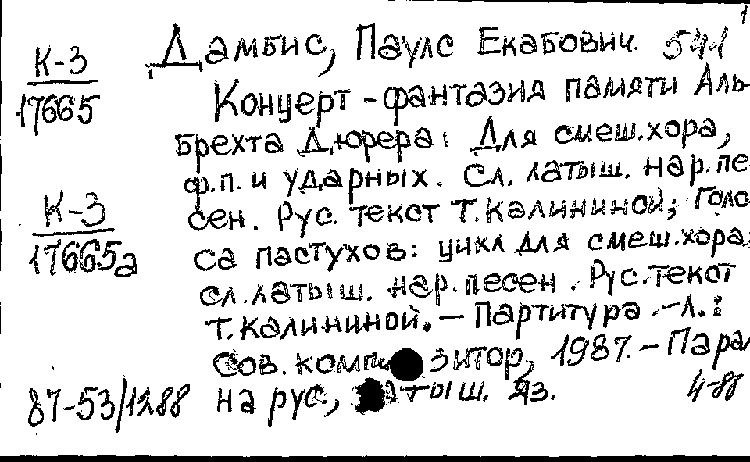 Дамбис, Паулс Екабович. 541
К-3
17665
Концерт-фантазия памяти Аль-
брехта Дюрера: Для смеш.хора,
ф.п. и ударных. Сл. латыш. нар.пе-
К-3
17665а
сен. Рус. текст Т.Калининой; Голо-
са пастухов: цикл для смеш.хора:
сл.латыш. нар.песен. Рус.текст
Т.Калининой. - Партитура. - Л.:
Сов. композитор, 1987. - Парал.
87-53/1288 на рус., латыш. яз. 4-88